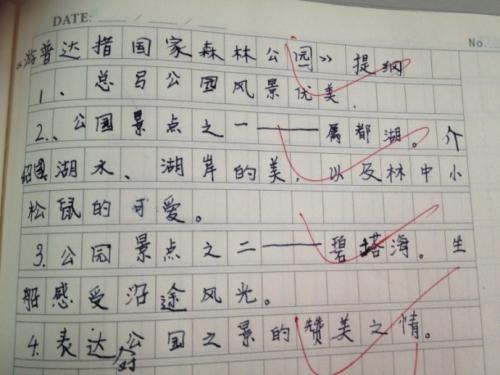 DATE: No.
《游普达措国家森林公园》提纲
1、总写公园风景优美.
2、公园景点之一——属都湖。介
绍湖水、湖岸的美,以及林中小
松鼠的可爱。
3.公园景点之二——碧塔海。生
船感受沿途风光。
4.表达对公园之景的赞美之情。